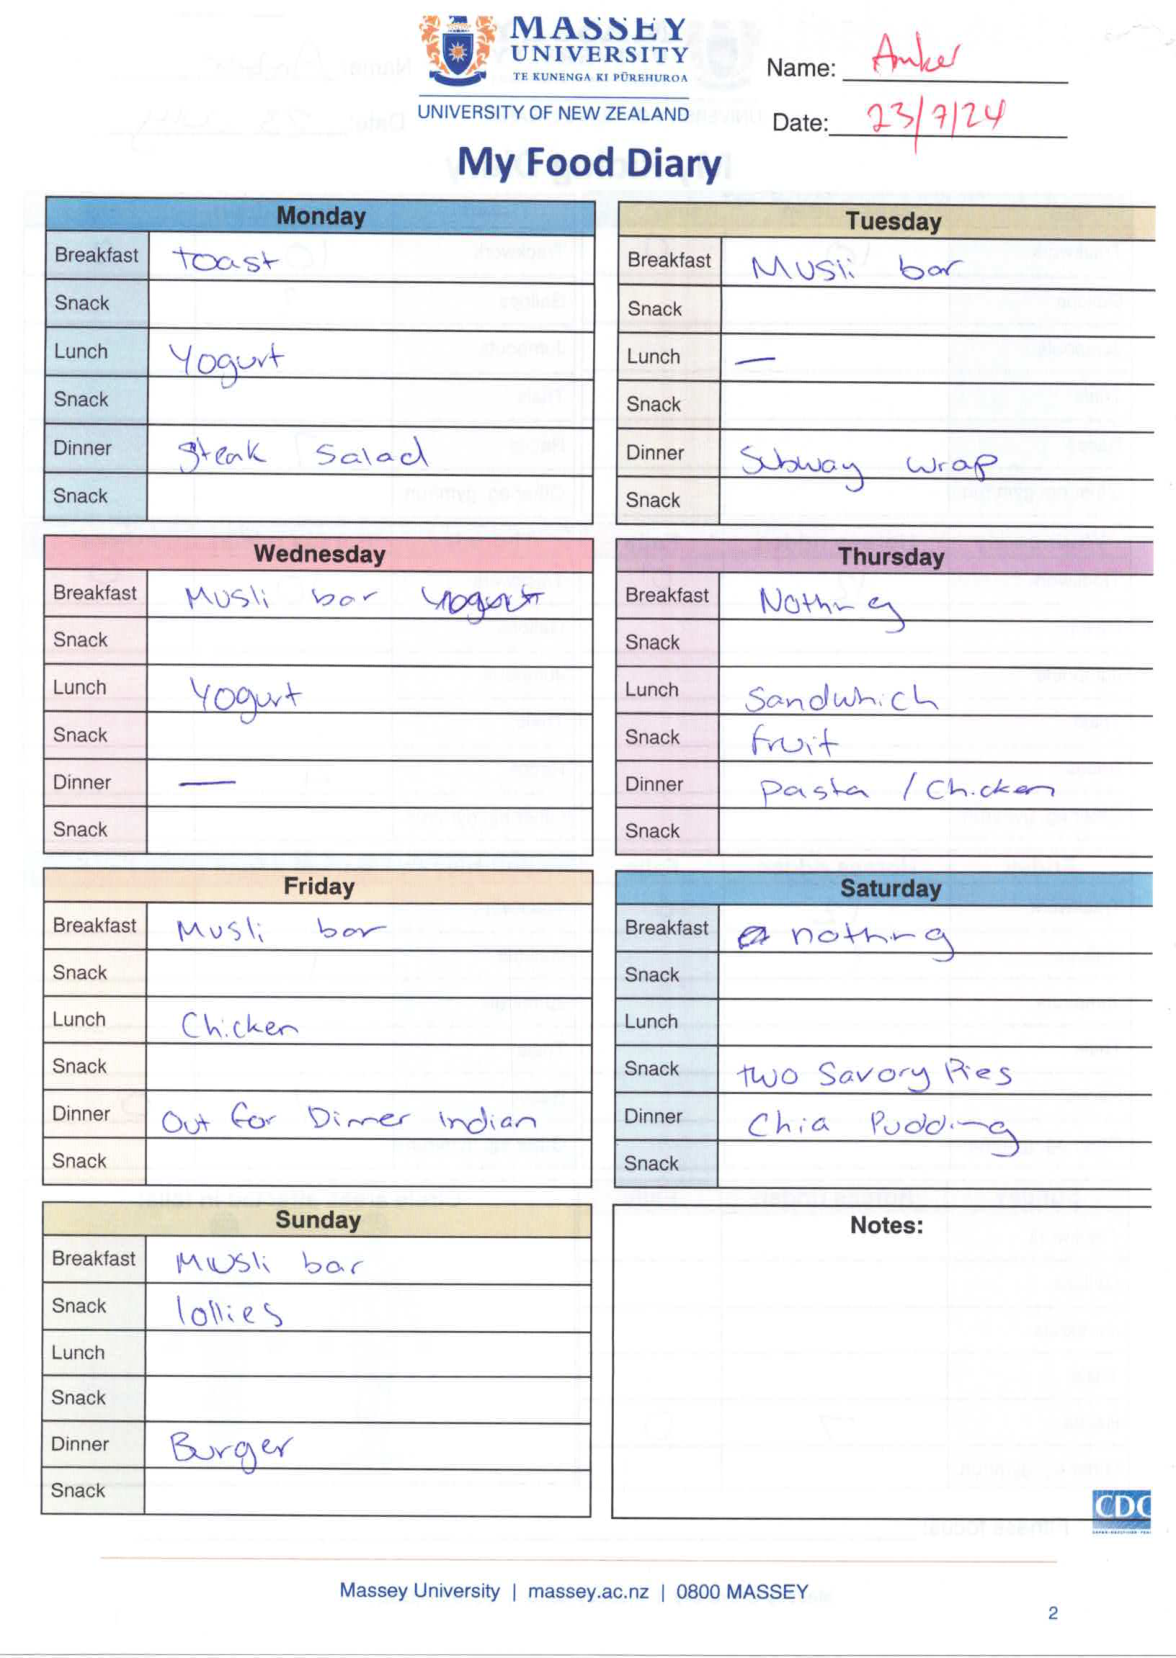 MASSEY
UNIVERSITY
TE KUNENGA KI PŪREHUROA
UNIVERSITY OF NEW ZEALAND
Name: Anker
Date: 23/7/24
My Food Diary
Monday
Breakfast toast
Snack
Lunch Yogurt
Snack
Dinner Steak Salad
Snack
Tuesday
Breakfast Musli bar
Snack
Lunch —
Snack
Dinner Subway wrap
Snack
Wednesday
Breakfast Musli bar Yogurt
Snack
Lunch Yogurt
Snack
Dinner —
Snack
Thursday
Breakfast Nothing
Snack
Lunch Sandwhich
Snack fruit
Dinner pasta / Chicken
Snack
Friday
Breakfast Musli bar
Snack
Lunch Chicken
Snack
Dinner Out for Dinner Indian
Snack
Saturday
Breakfast nothing
Snack
Lunch
Snack two Savory Pies
Dinner Chia Pudding
Snack
Sunday
Breakfast Musli bar
Snack lollies
Lunch
Snack
Dinner Burger
Snack
Notes:
CDC
Massey University | massey.ac.nz | 0800 MASSEY
2